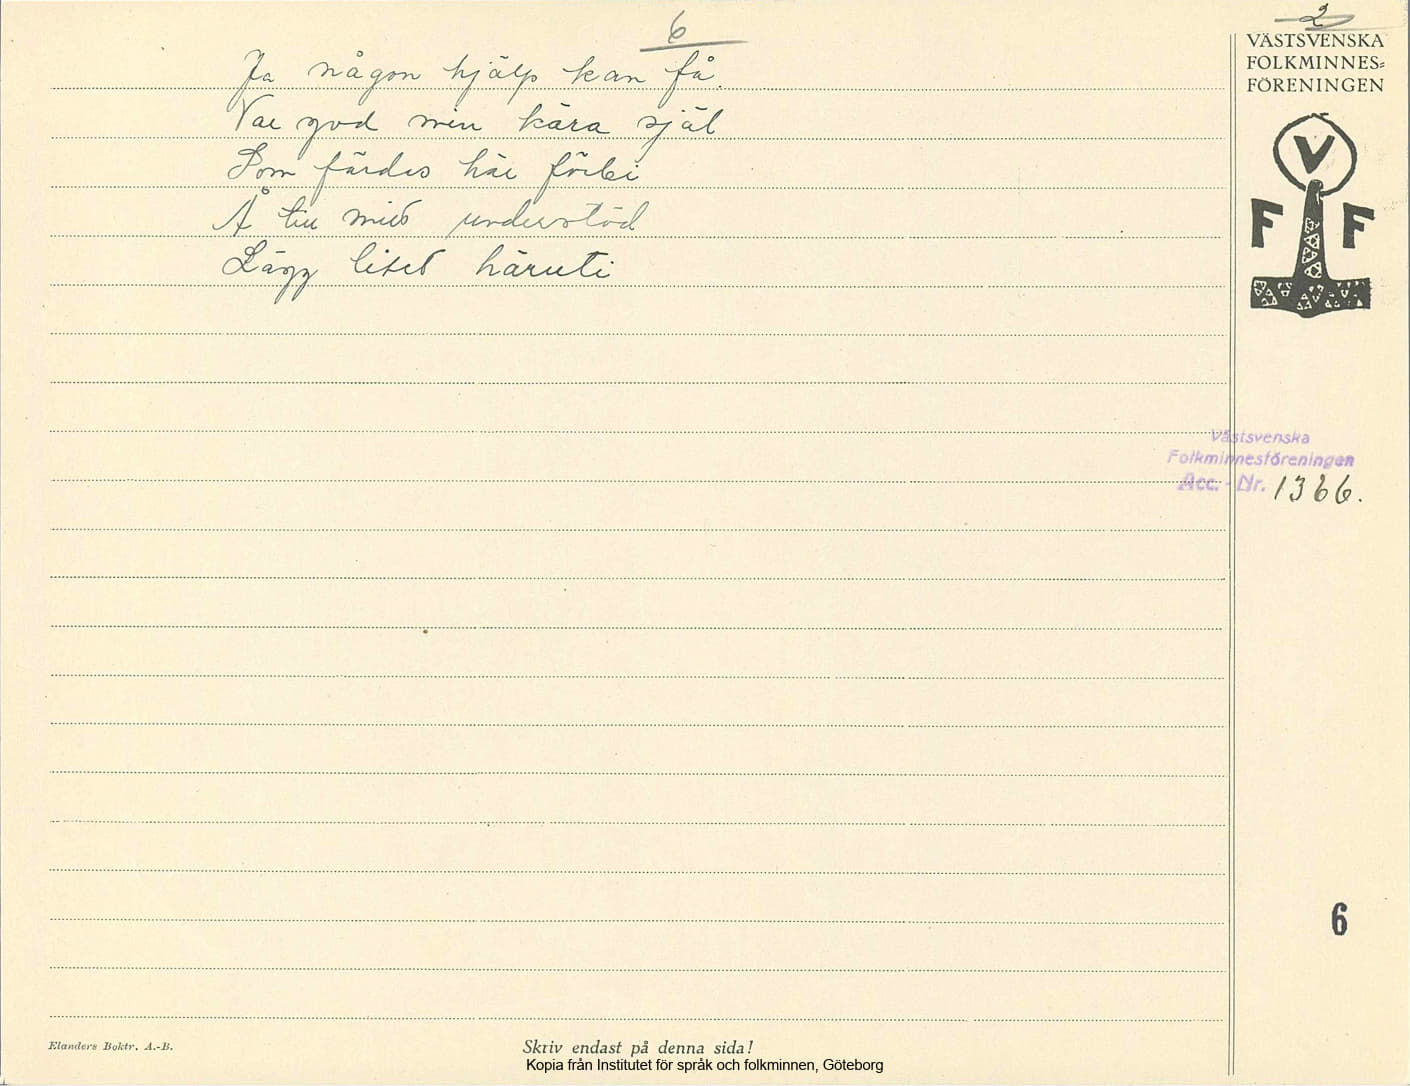 6
2
VÄSTSVENSKA
FOLKMINNES=
FÖRENINGEN
V
F F
Ja någon hjälp kan få.
Var god min kära själ
Som färdes här förbi
Å till mitt understöd
Lägg litet häruti
Västsvenska
Folkminnesföreningen
Acc. - Nr. 1366.
6
Elanders Boktr. A.-B.
Skriv endast på denna sida!
Kopia från Institutet för språk och folkminnen, Göteborg